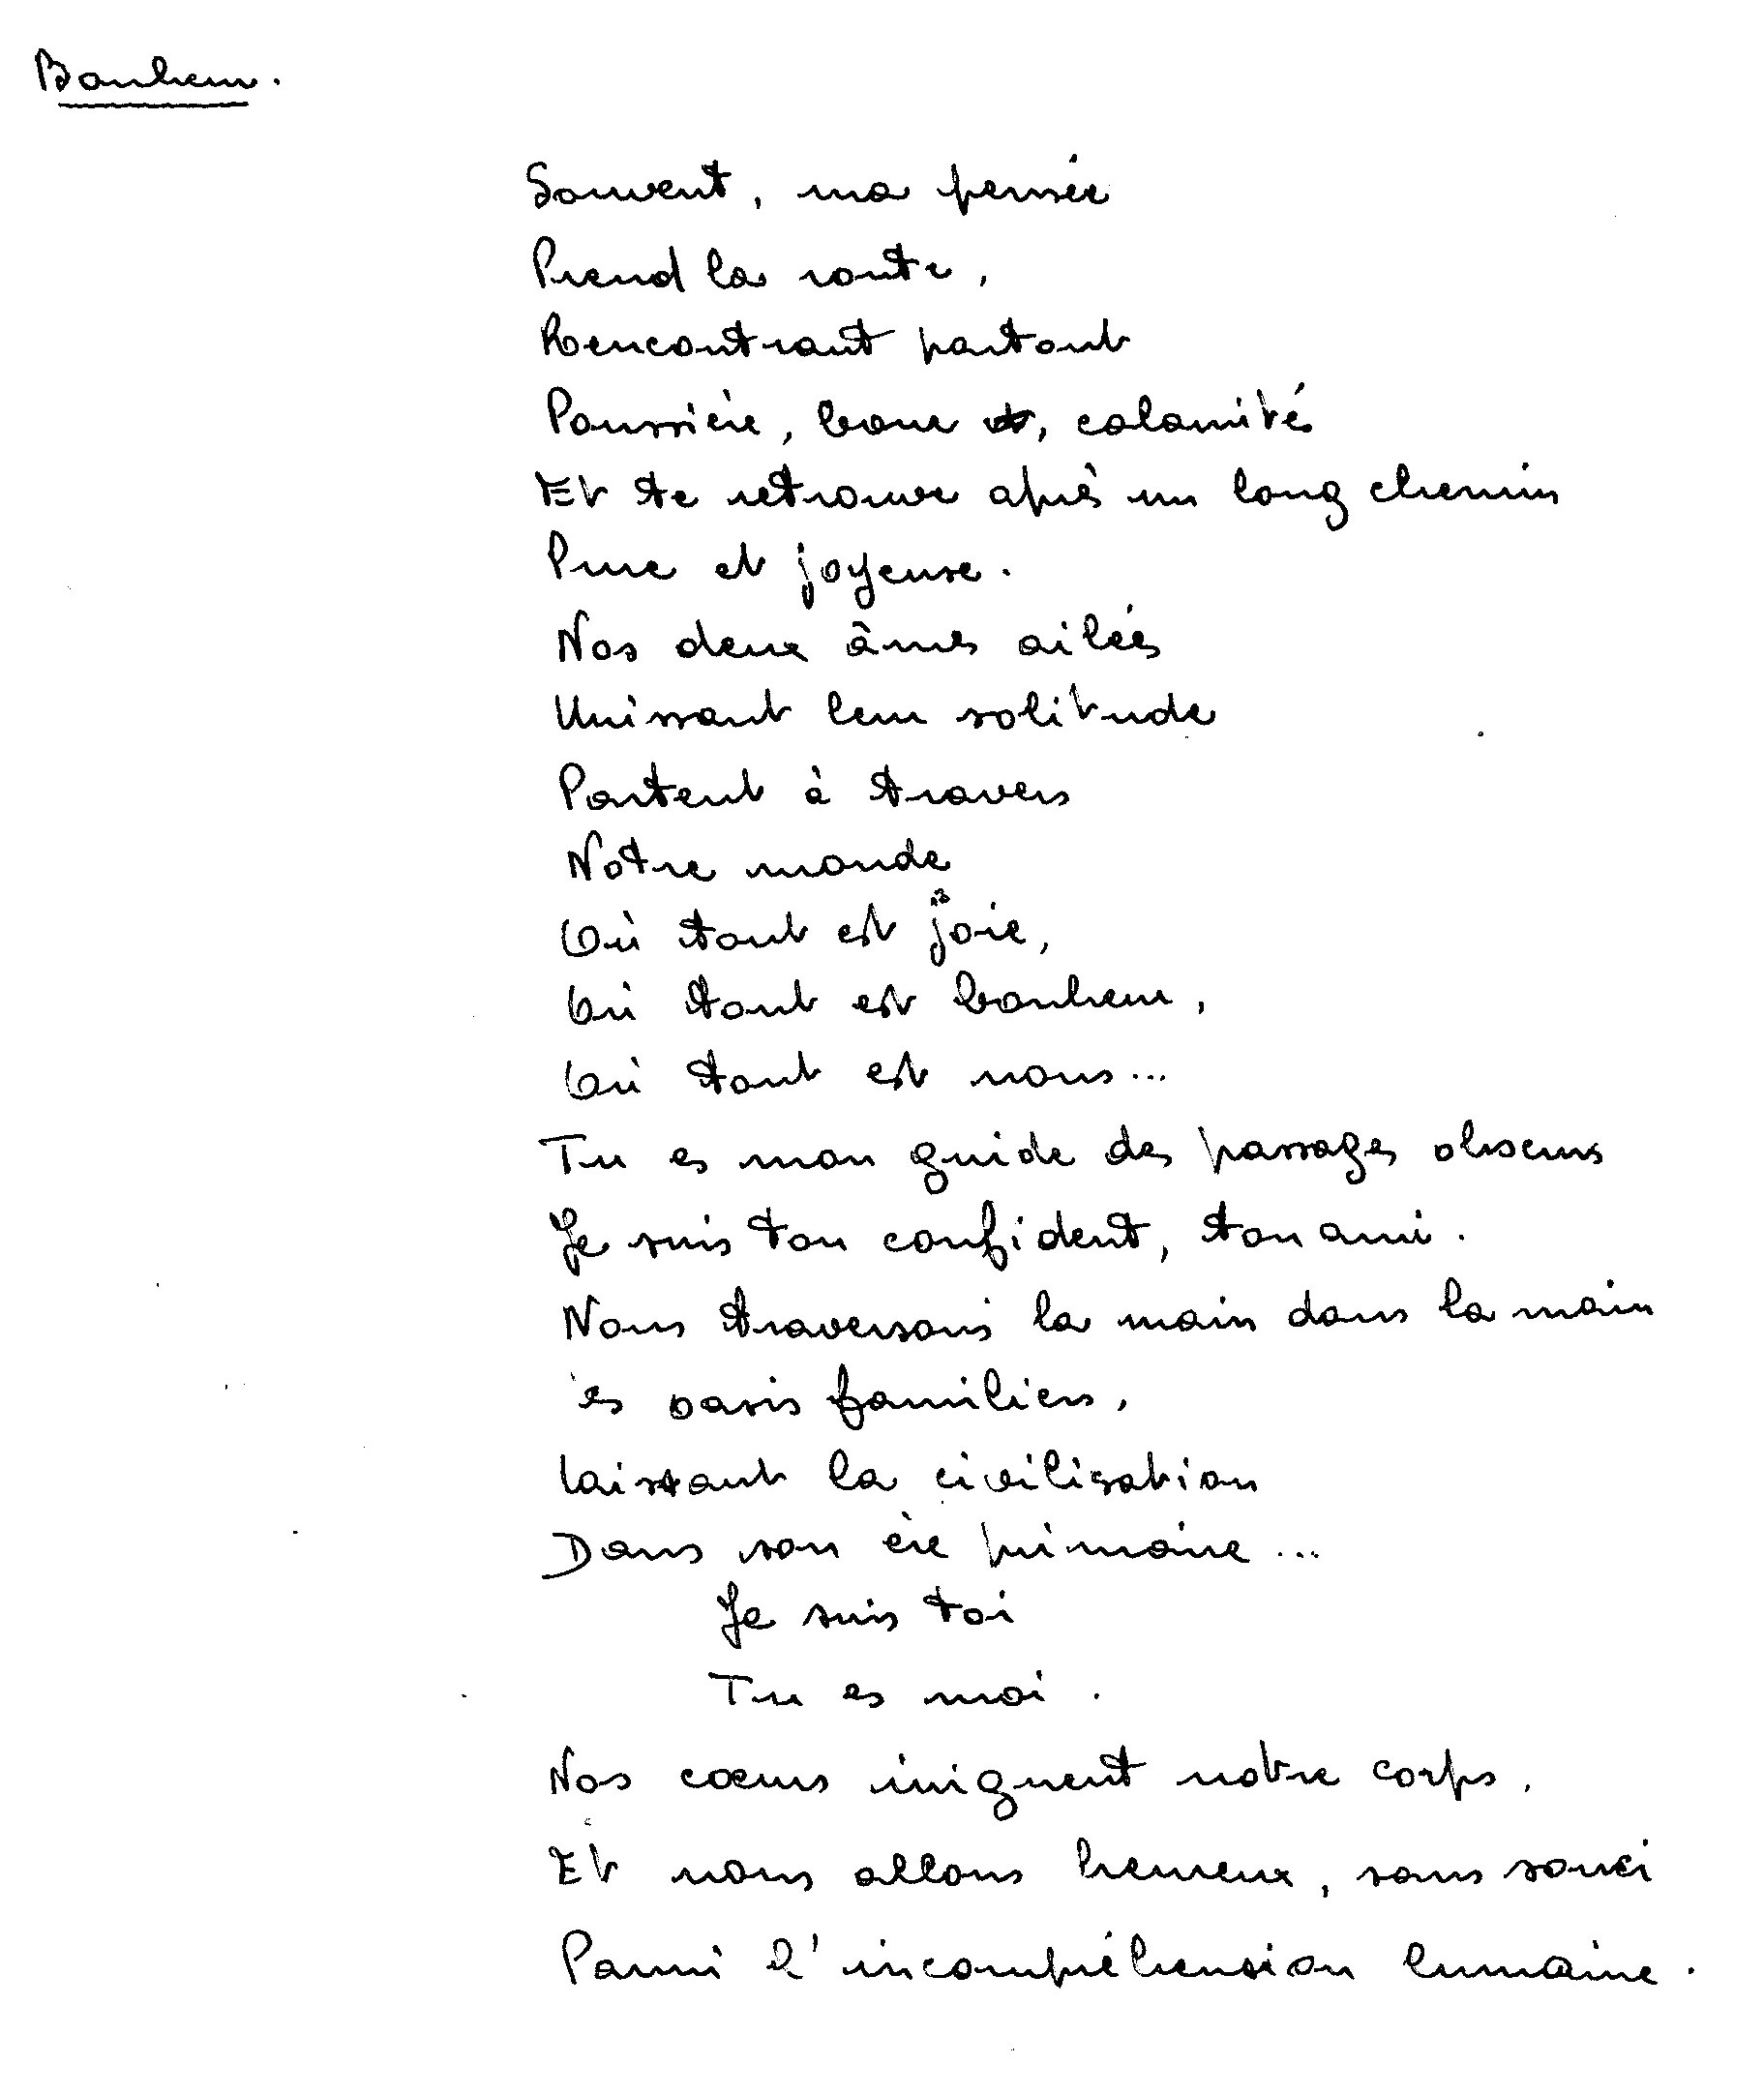 Bonheur.
Souvent, ma pensée
Prend la route,
Rencontrant partout
Poussière, boue, calamités
Et te retrouve après un long chemin
Pure et joyeuse.
Nos deux âmes ailées
Unissant leur solitude
Partent à travers
Notre monde
Où tout est joie,
Où tout est bonheur,
Où tout est nous...
Tu es mon guide des passages obscurs
Je suis ton confident, ton ami.
Nous traversons la main dans la main
es oasis familiers,
Laissant la civilisation
Dans son ère primaire...
Je suis toi
Tu es moi.
Nos cœurs irriguent notre corps,
Et nous allons heureux, sans souci
Parmi l'incompréhension humaine.